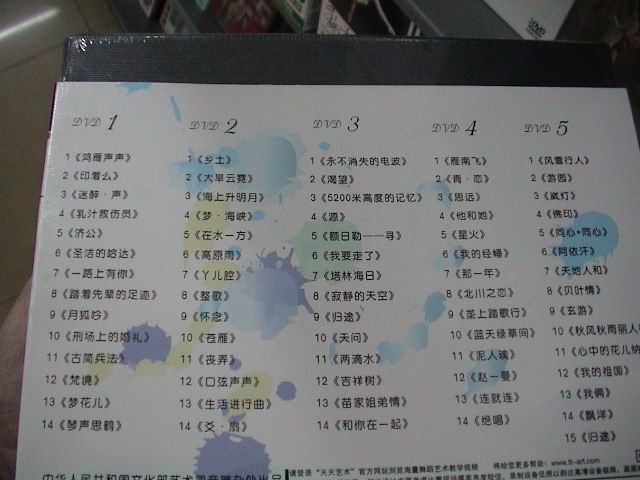 DVD 1
1《鸿雁声声》
2《印着么》
3《迷醉·声》
4《乳汁救伤员》
5《济公》
6《圣洁的哈达》
7《一路上有你》
8《踏着先辈的足迹》
9《月狐吟》
10《刑场上的婚礼》
11《古简兵法》
12《梵境》
13《梦花儿》
14《琴声思鹤》
DVD 2
1《乡土》
2《大旱云霓》
3《海上升明月》
4《梦·海峡》
5《在水一方》
6《高原雨》
7《丫儿腔》
8《整歌》
9《怀念》
10《苍雁》
11《夜弄》
12《口弦声声》
13《生活进行曲》
14《爻·扇》
DVD 3
1《永不消失的电波》
2《渴望》
3《5200米高度的记忆》
4《源》
5《额日勒——寻》
6《我要走了》
7《塔林海日》
8《寂静的天空》
9《归途》
10《天问》
11《两滴水》
12《吉祥树》
13《苗家姐弟情》
14《和你在一起》
DVD 4
1《雁南飞》
2《青·恋》
3《思远》
4《他和她》
5《星火》
6《我的经幡》
7《那一年》
8《北川之恋》
9《圣上踏歌行》
10《蓝天绿草间》
11《泥人魂》
12《赵一曼》
13《连就连》
14《绝唱》
DVD 5
1《风雪行人》
2《游园》
3《岚灯》
4《佛印》
5《同心·同心》
6《阿依汗》
7《天地人和》
8《贝叶情》
9《玄游》
10《秋风秋雨丽人
11《心中的花儿纳
12《我的祖国》
13《我俩》
14《飘洋》
15《归途》
请登录“天天艺术”官方网站浏览海量舞蹈艺术教学视频 将给您更多帮助! www.tt-art.com